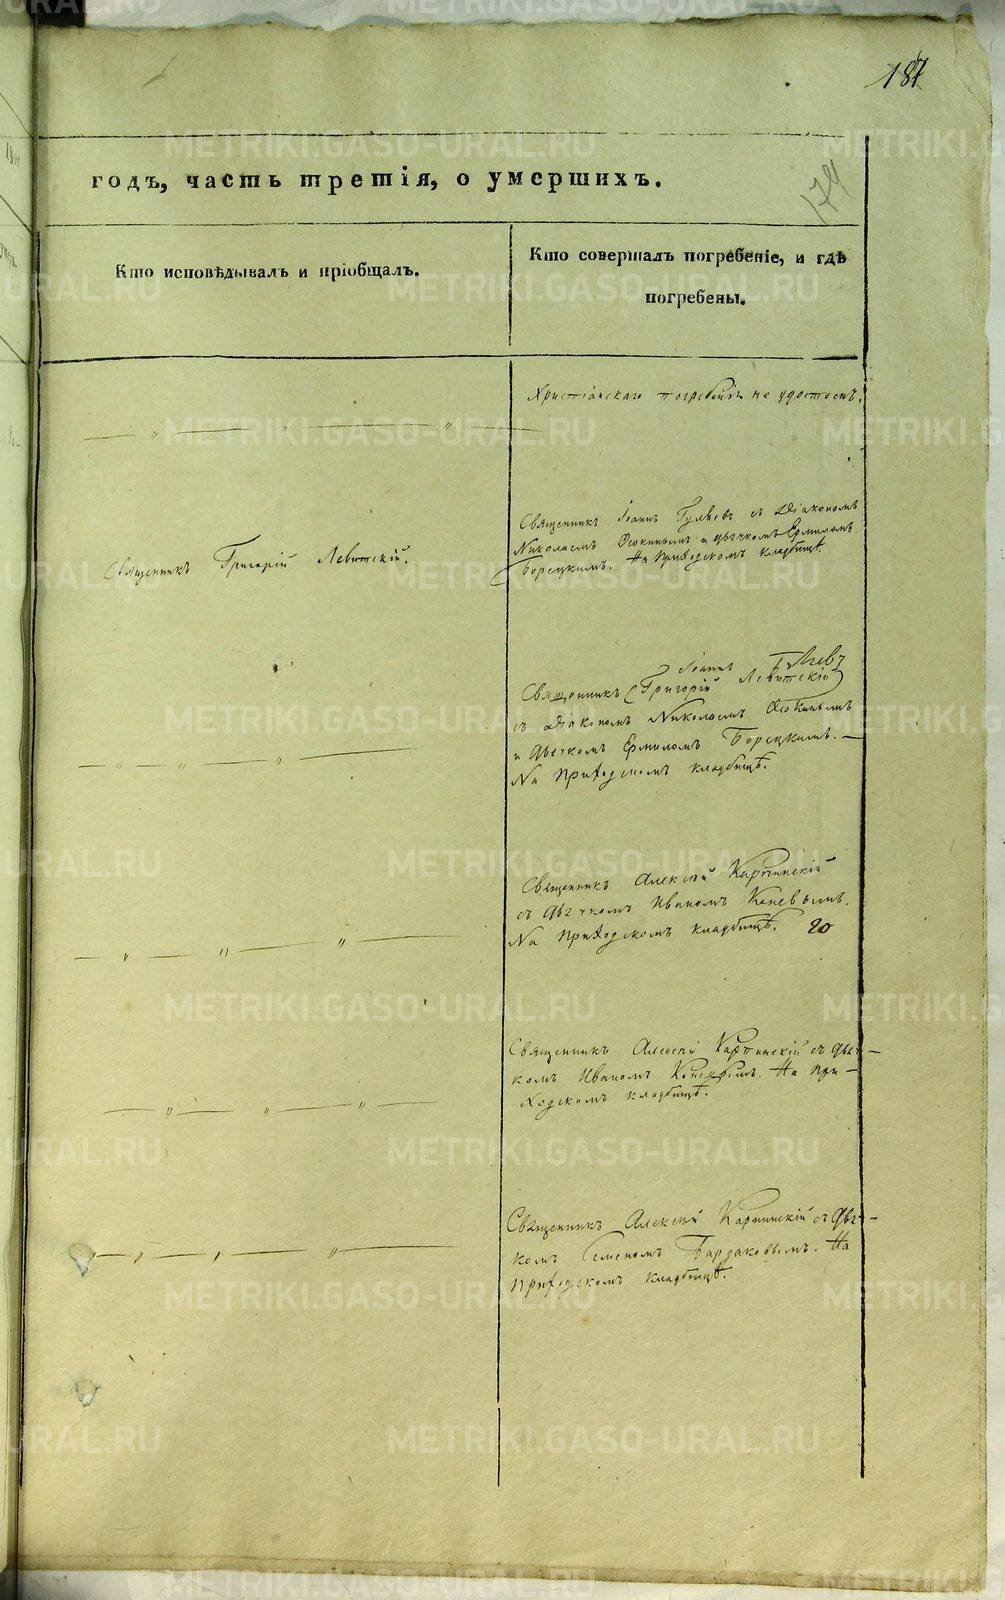 187
179
годъ, часть третія, о умершихъ.
Кто исповѣдывалъ и пріобщалъ.
Кто совершалъ погребеніе, и гдѣ
погребены.
Христіанскаго погребенія не удостоенъ.
Священникъ Григорій Левитскій.
Священникъ Іоаннъ Гуляевъ съ Діакономъ
Николаемъ Ѳокинымъ и дьячкомъ Ермиломъ
Борецкимъ. На Приходскомъ кладбищѣ.
Іоаннъ
Священникъ (Григорій Левитскій)
съ Діакономъ Николаемъ
и дьячкомъ Ермиломъ Борецкимъ.
На Приходскомъ кладбищѣ.
Священникъ Алексѣй Карпинскій
съ дьячкомъ Иваномъ Коневымъ.
На Приходскомъ кладбищѣ. 20
Священникъ Алексѣй Карпинскій съ дьяч-
комъ Иваномъ Коневымъ. На При-
ходскомъ кладбищѣ.
Священникъ Алексѣй Карпинскій съ дьяч-
комъ Семеномъ Бардаковымъ. На
Приходскомъ кладбищѣ.
METRIKI.GASO-URAL.RU